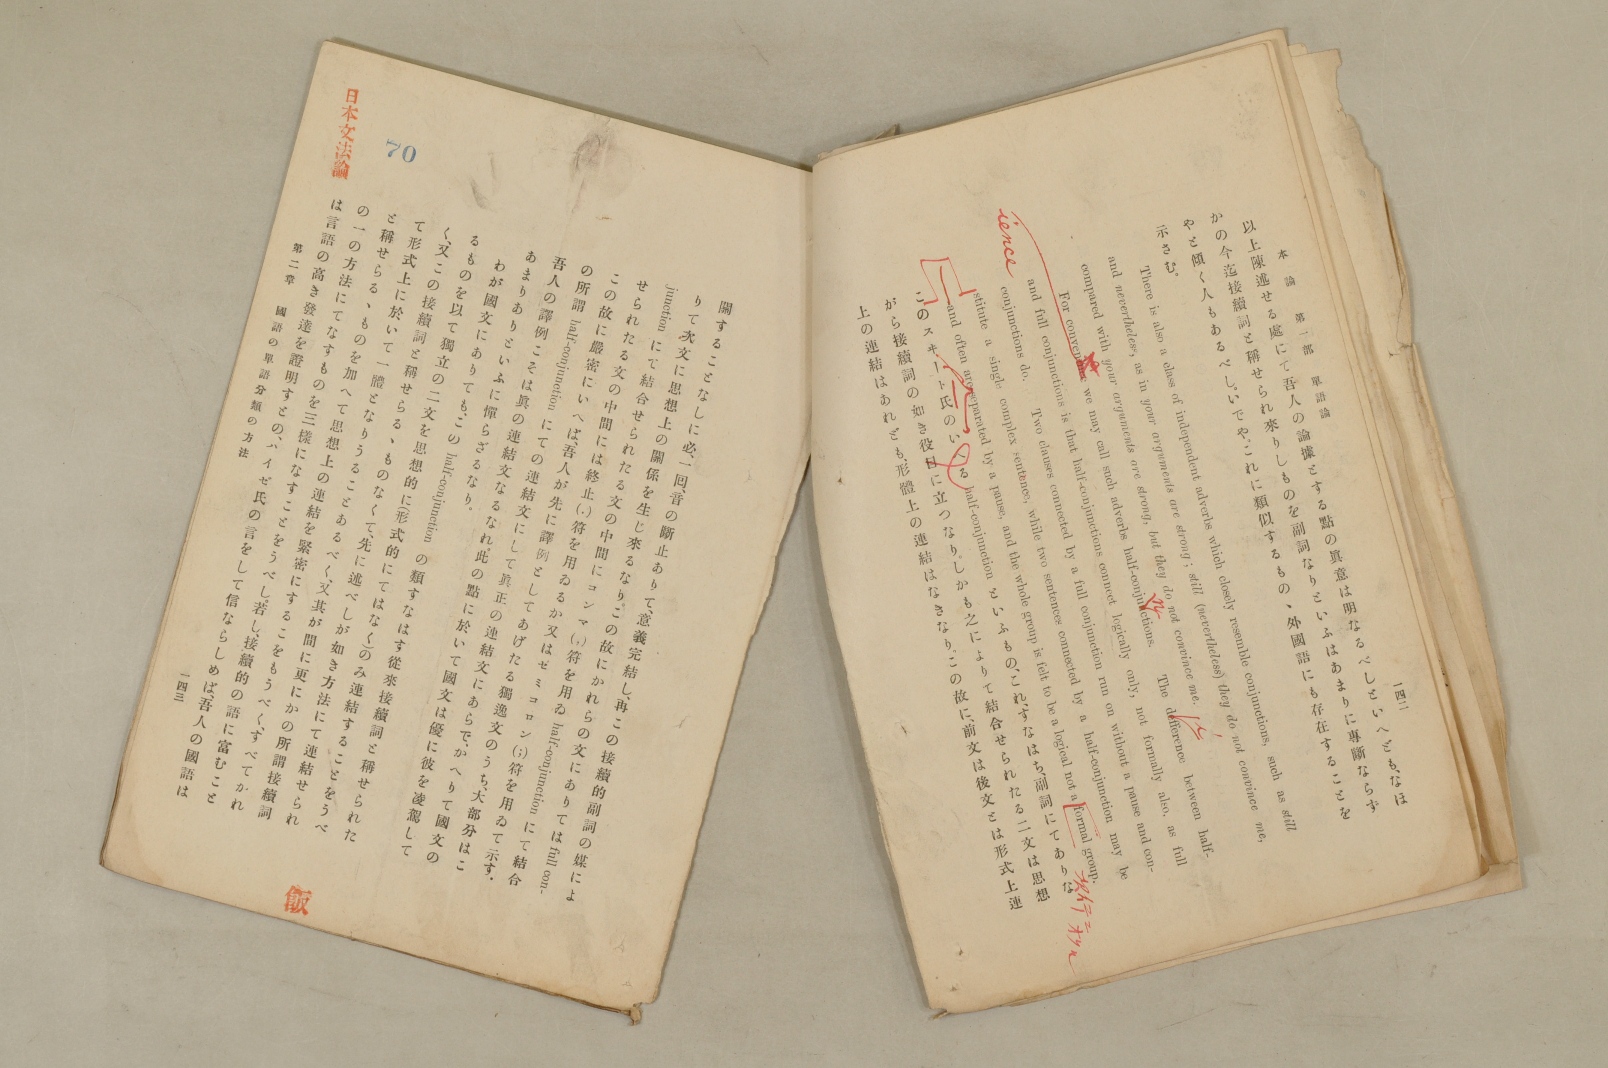 本論 第一部 單語論
一四二
以上陳述せる處にて吾人の論據とする點の眞意は明なるべしといへども、なほ
かの今迄接續詞と稱せられ來りしものを副詞なりといふはあまりに專斷ならず
やと傾く人もあるべし。いでや、これに類似するもの、外國語にも存在することを
示さむ。
There is also a class of independent adverbs which closely resemble conjunctions, such as still
and nevertheless, as in your arguments are strong; still (nevertheless) they do not convince me,
compared with your arguments are strong, but they do not convince me.
For convenience we may call such adverbs half-conjunctions. The difference between half-
and full conjunctions is that half-conjunctions connect logically only; not formally also, as full
conjunctions do. Two clauses connected by a full conjunction run on without a pause and con-
stitute a single complex sentence, while two sentences connected by a half-conjunction may be
and often are separated by a pause, and the whole group is felt to be a logical not a formal group.
ience
このスヰート氏のいへる half-conjunction といふもの、これ、すなはち副詞にてありな
がら接續詞の如き役目に立つなり。しかも之によりて結合せられたる二文は思想
上の連結はあれども、形體上の連結はなきなり。この故に、前文は後文とは形式上連
關することなしに必、一回音の斷止ありて、意義完結し、再この接續的副詞の媒によ
りて次文に思想上の關係を生じ來るなり。この故にかれらの文にありては full con-
junction にて結合せられたる文の中間にコンマ(,)符を用ゐ half-conjunction にて結合
せられたる文の中間には終止(.)符を用ゐるか又はゼミコロン(;)符を用ゐて示す。
この故に嚴密にいへば、吾人が先に譯例としてあげたる獨逸文のうち、大部分はこ
の所謂 half-conjunction にての連結文にして眞正の連結文にあらで、かへりて國文の
吾人の譯例こそは眞の連結文なるなれ。此の點に於いて國文は優に彼を凌駕して
あまりありといふに憚らざるなり。
わが國文にありても、この half-conjunction の類すなはす從來接續詞と稱せられた
るものを以て獨立の二文を思想的に(形式的にてはなく)のみ連結することをうべ
く、又この接續詞と稱せらるゝものなくて、先に述べしが如き方法にて連結せられ
て形式上に於いて一體となりうることあるべく、又其が間に更にかの所謂接續詞
と稱せらるゝものを加へて思想上の連結を緊密にするこをもうべく、すべてかれ
の一の方法にてなすものを三樣になすことをうべし。若し、接續的の語に富むこと
は言語の高き發達を證明すとの、ハイゼ氏の言をして信ならしめば、吾人の國語は
第二章 國語の單語分類の方法
一四三
日本文法論
70
飯